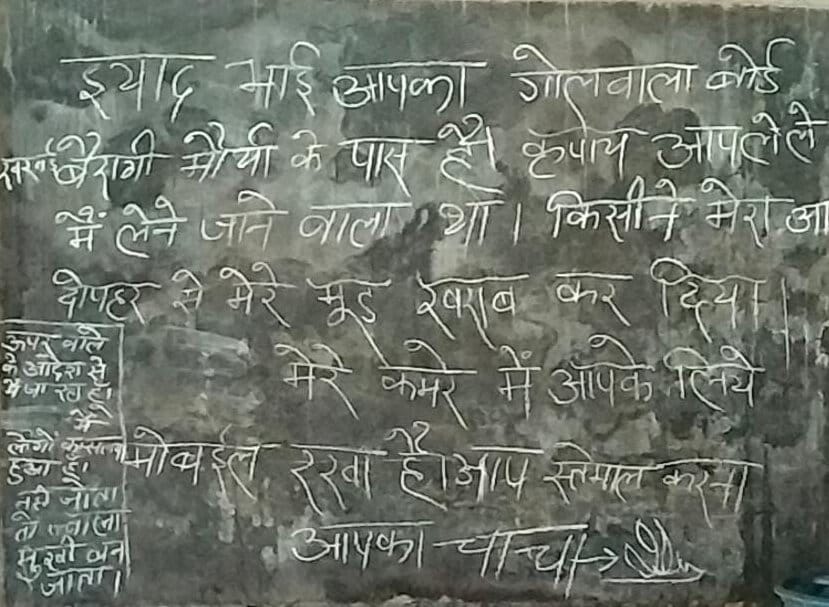 इयाद भाई आपका गोलवाला बोर्ड
बैरागी मौर्या के पास है। कृपोय आपलेले
मैं लेने जाने वाला था। किसीने मेरा आ
दोपहर से मेरे मूड खराब कर दिया।
मेरे कमरे में आपके लिये
मोबईल रखा है। आप स्तेमाल करना
आपका चाचा→
ऊपर वाले
के आदेश से
मैं
लोगों
हुआ हूँ।
नही जाता
तो
सुखी बन
जाता।